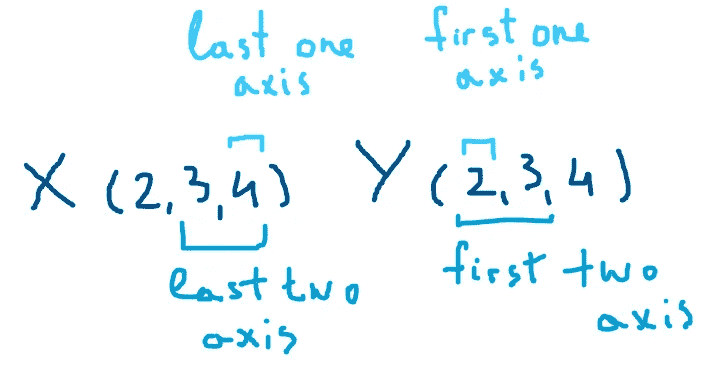 last one
axis
first one
axis
X (2,3,4) Y (2,3,4)
last two
axis
first two
axis